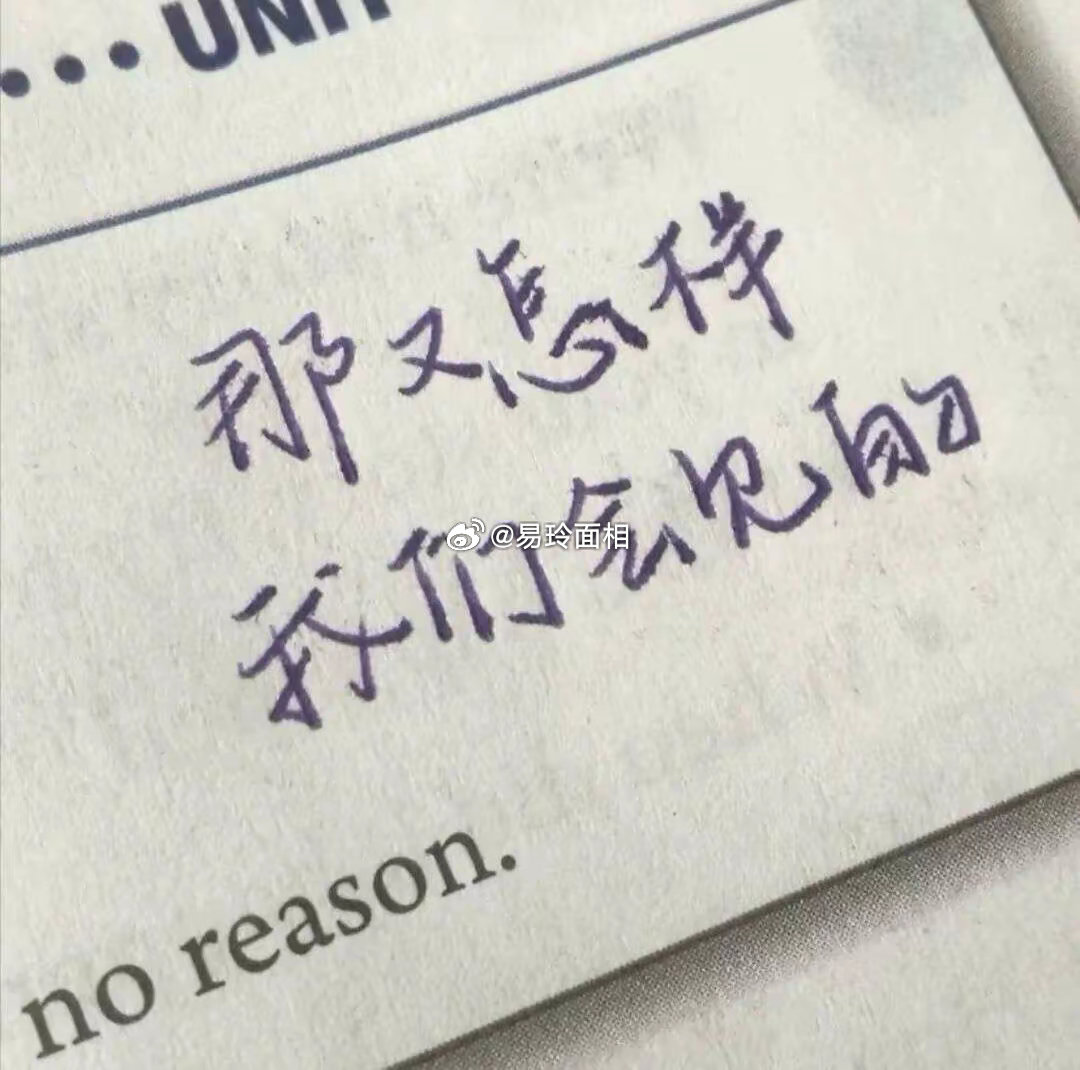 ••• UNIT
那又怎样
我们会见的
@易玲面相
no reason.